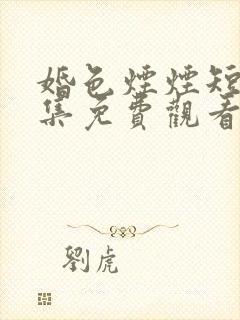 婚色煙煙短
集免費觀看
劉虎